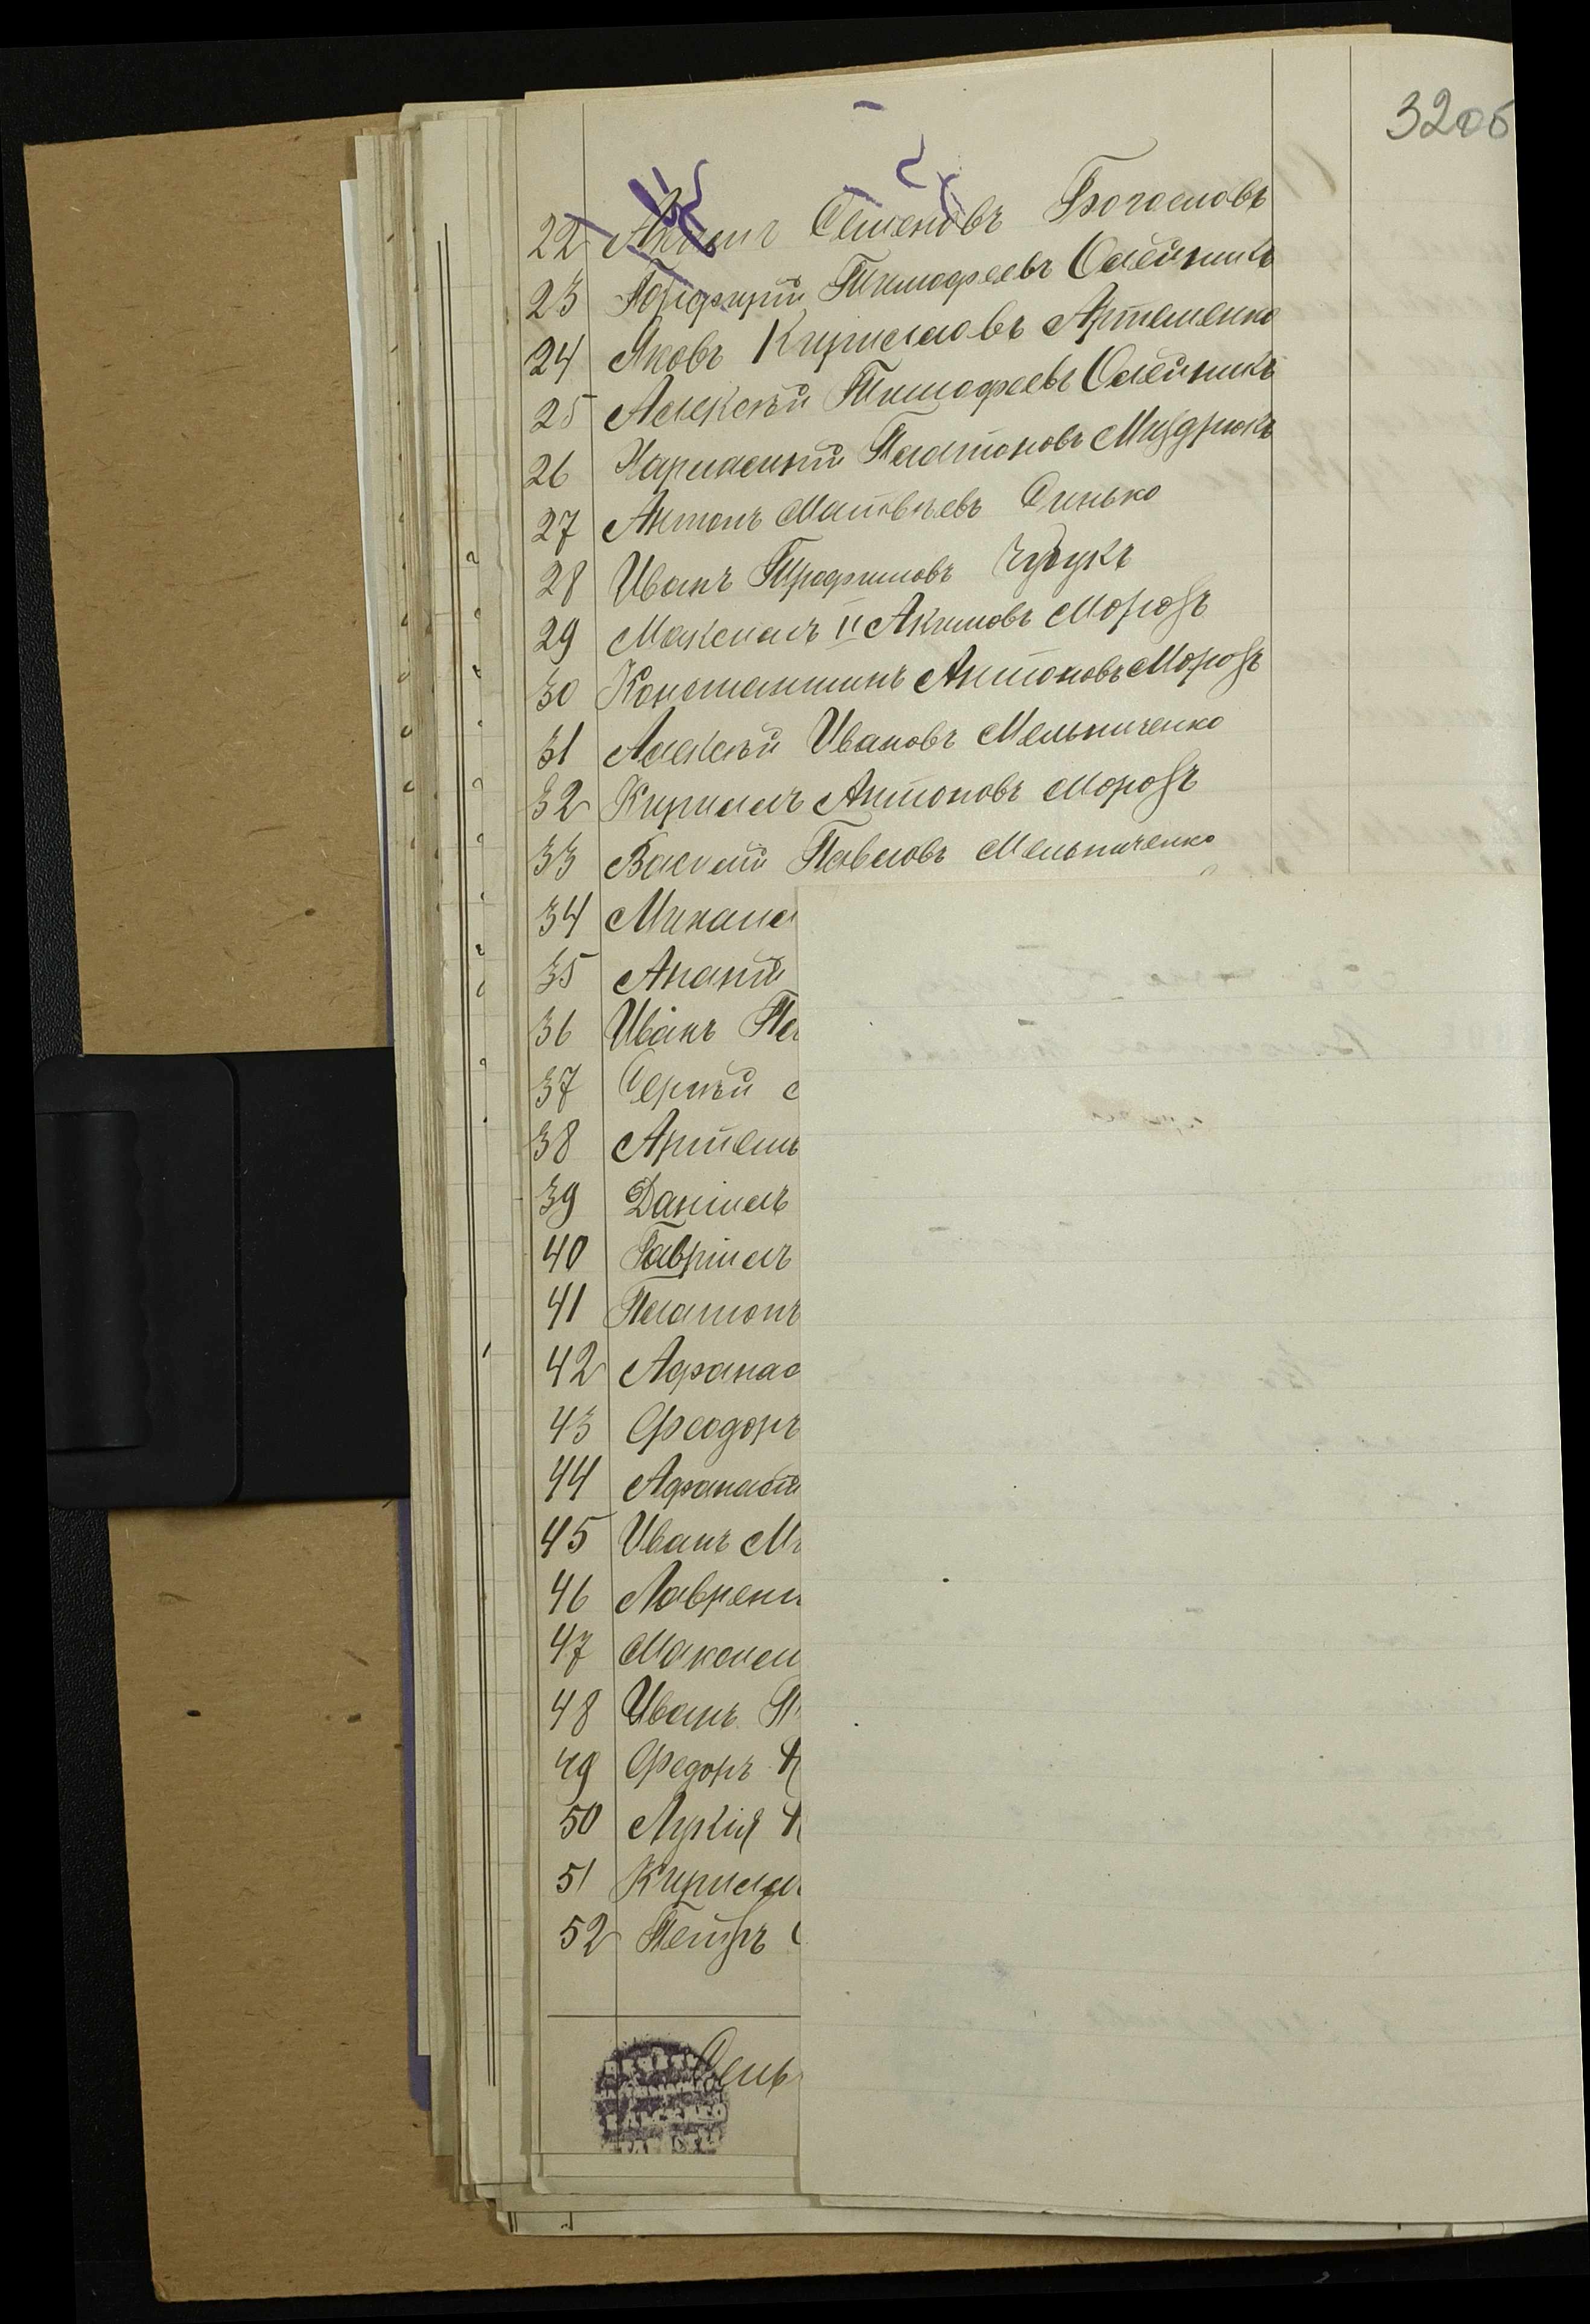 32об
22 Семеновъ Богословъ
23 Порфирій Тимофеевъ Олейникъ
24 Яковъ Кирилловъ Артеменко
25 Алексѣй Тимофеевъ Олейникъ
26 Харлампій Платоновъ Миздрюкъ
27 Антонъ Матвѣевъ Синько
28 Иванъ Трофимовъ Чубукъ
29 Максимъ II Акимовъ Морозъ
30 Константинъ Антоновъ Морозъ
31 Алексѣй Ивановъ Мельниченко
32 Кириллъ Антоновъ Морозъ
33 Василій Павловъ Мельниченко
34 Михаил
35 Ананій
36 Иванъ
37 Сергѣй
38 Артемъ
39 Даніилъ
40 Гавріилъ
41 Платонъ
42 Афанас
43 Феодоръ
44 Афанасій
45 Иванъ
46 Лаврен
47 Максим
48 Иванъ
49 Федоръ
50 Лукія
51 Кирилл
52 Петръ
Сель